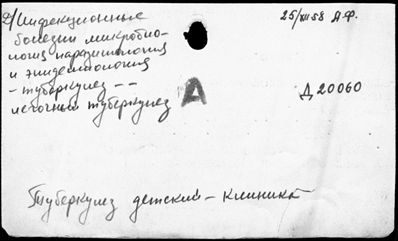 2/ Инфекционные
болезни микробио-
логия паразитология
и эпидемиология
- туберкулез --
легочный туберкулез
25/XII 58 А.Ф.
А
Д 20060
Туберкулез детский - клиника